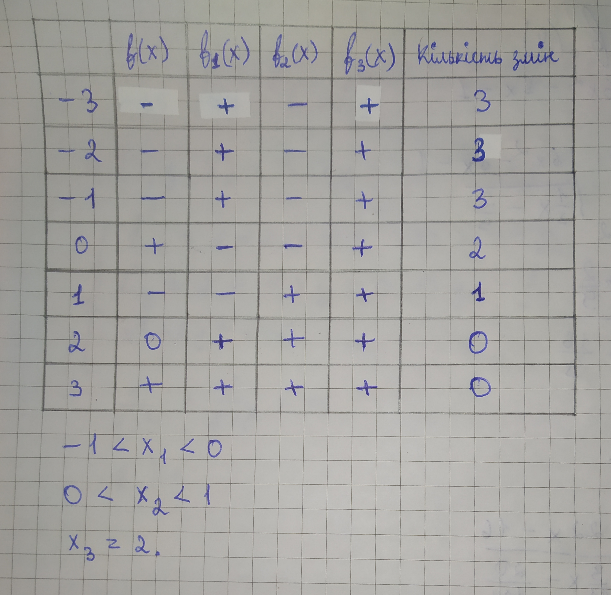 f(x) f₁(x) f₂(x) f₃(x) Кількість змін
-3 - + - + 3
-2 - + - + 3
-1 - + - + 3
0 + - - + 2
1 - - + + 1
2 0 + + + 0
3 + + + + 0
-1 < x₁ < 0
0 < x₂ < 1
x₃ = 2.